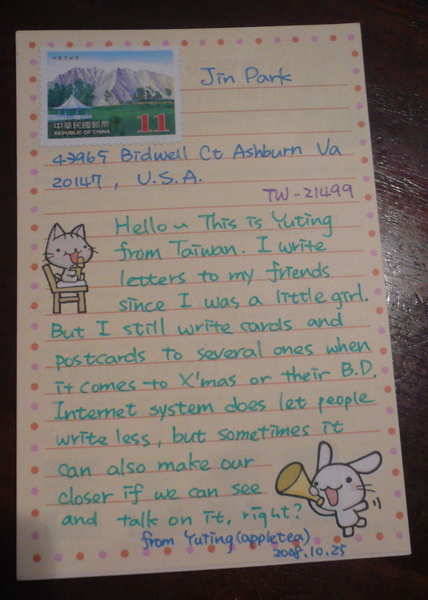 Jin Park
中華民國郵票
REPUBLIC OF CHINA
11
43965 Bidwell Ct Ashburn Va
20147, U.S.A.
TW-21499
Hello~ This is Yuting
from Taiwan. I write
letters to my friends
since I was a little girl.
But I still write cards and
postcards to several ones when
it comes to X'mas or their B.D.
Internet system does let people
write less, but sometimes it
can also make our
closer if we can see
and talk on it, right?
from Yuting(appletea)
2008.10.25